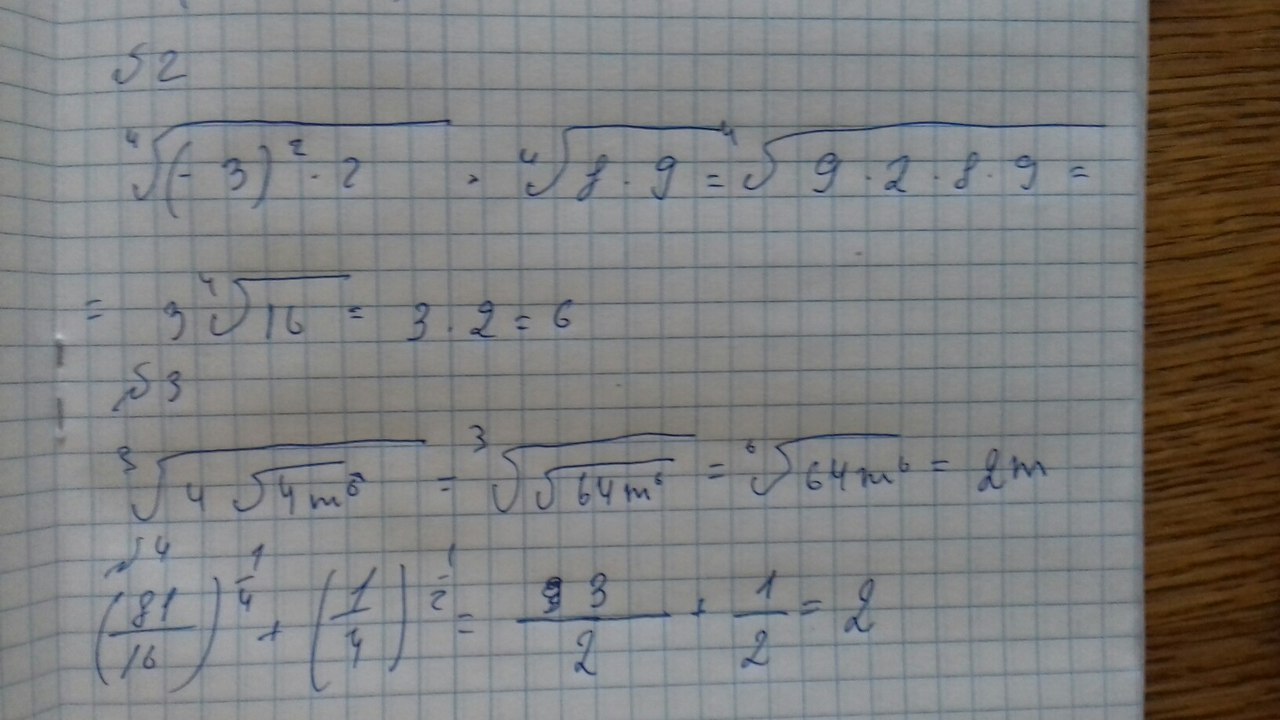 №2
⁴√((-3)² · 2) · ⁴√(8 · 9) = ⁴√(9 · 2 · 8 · 9) =
= 3 ⁴√16 = 3 · 2 = 6
№3
³√(4 √(4m⁶)) = ³√(√(64m⁶)) = ⁶√(64m⁶) = 2m
№4
(81/16)^(1/4) + (1/4)^(1/2) = 3/2 + 1/2 = 2